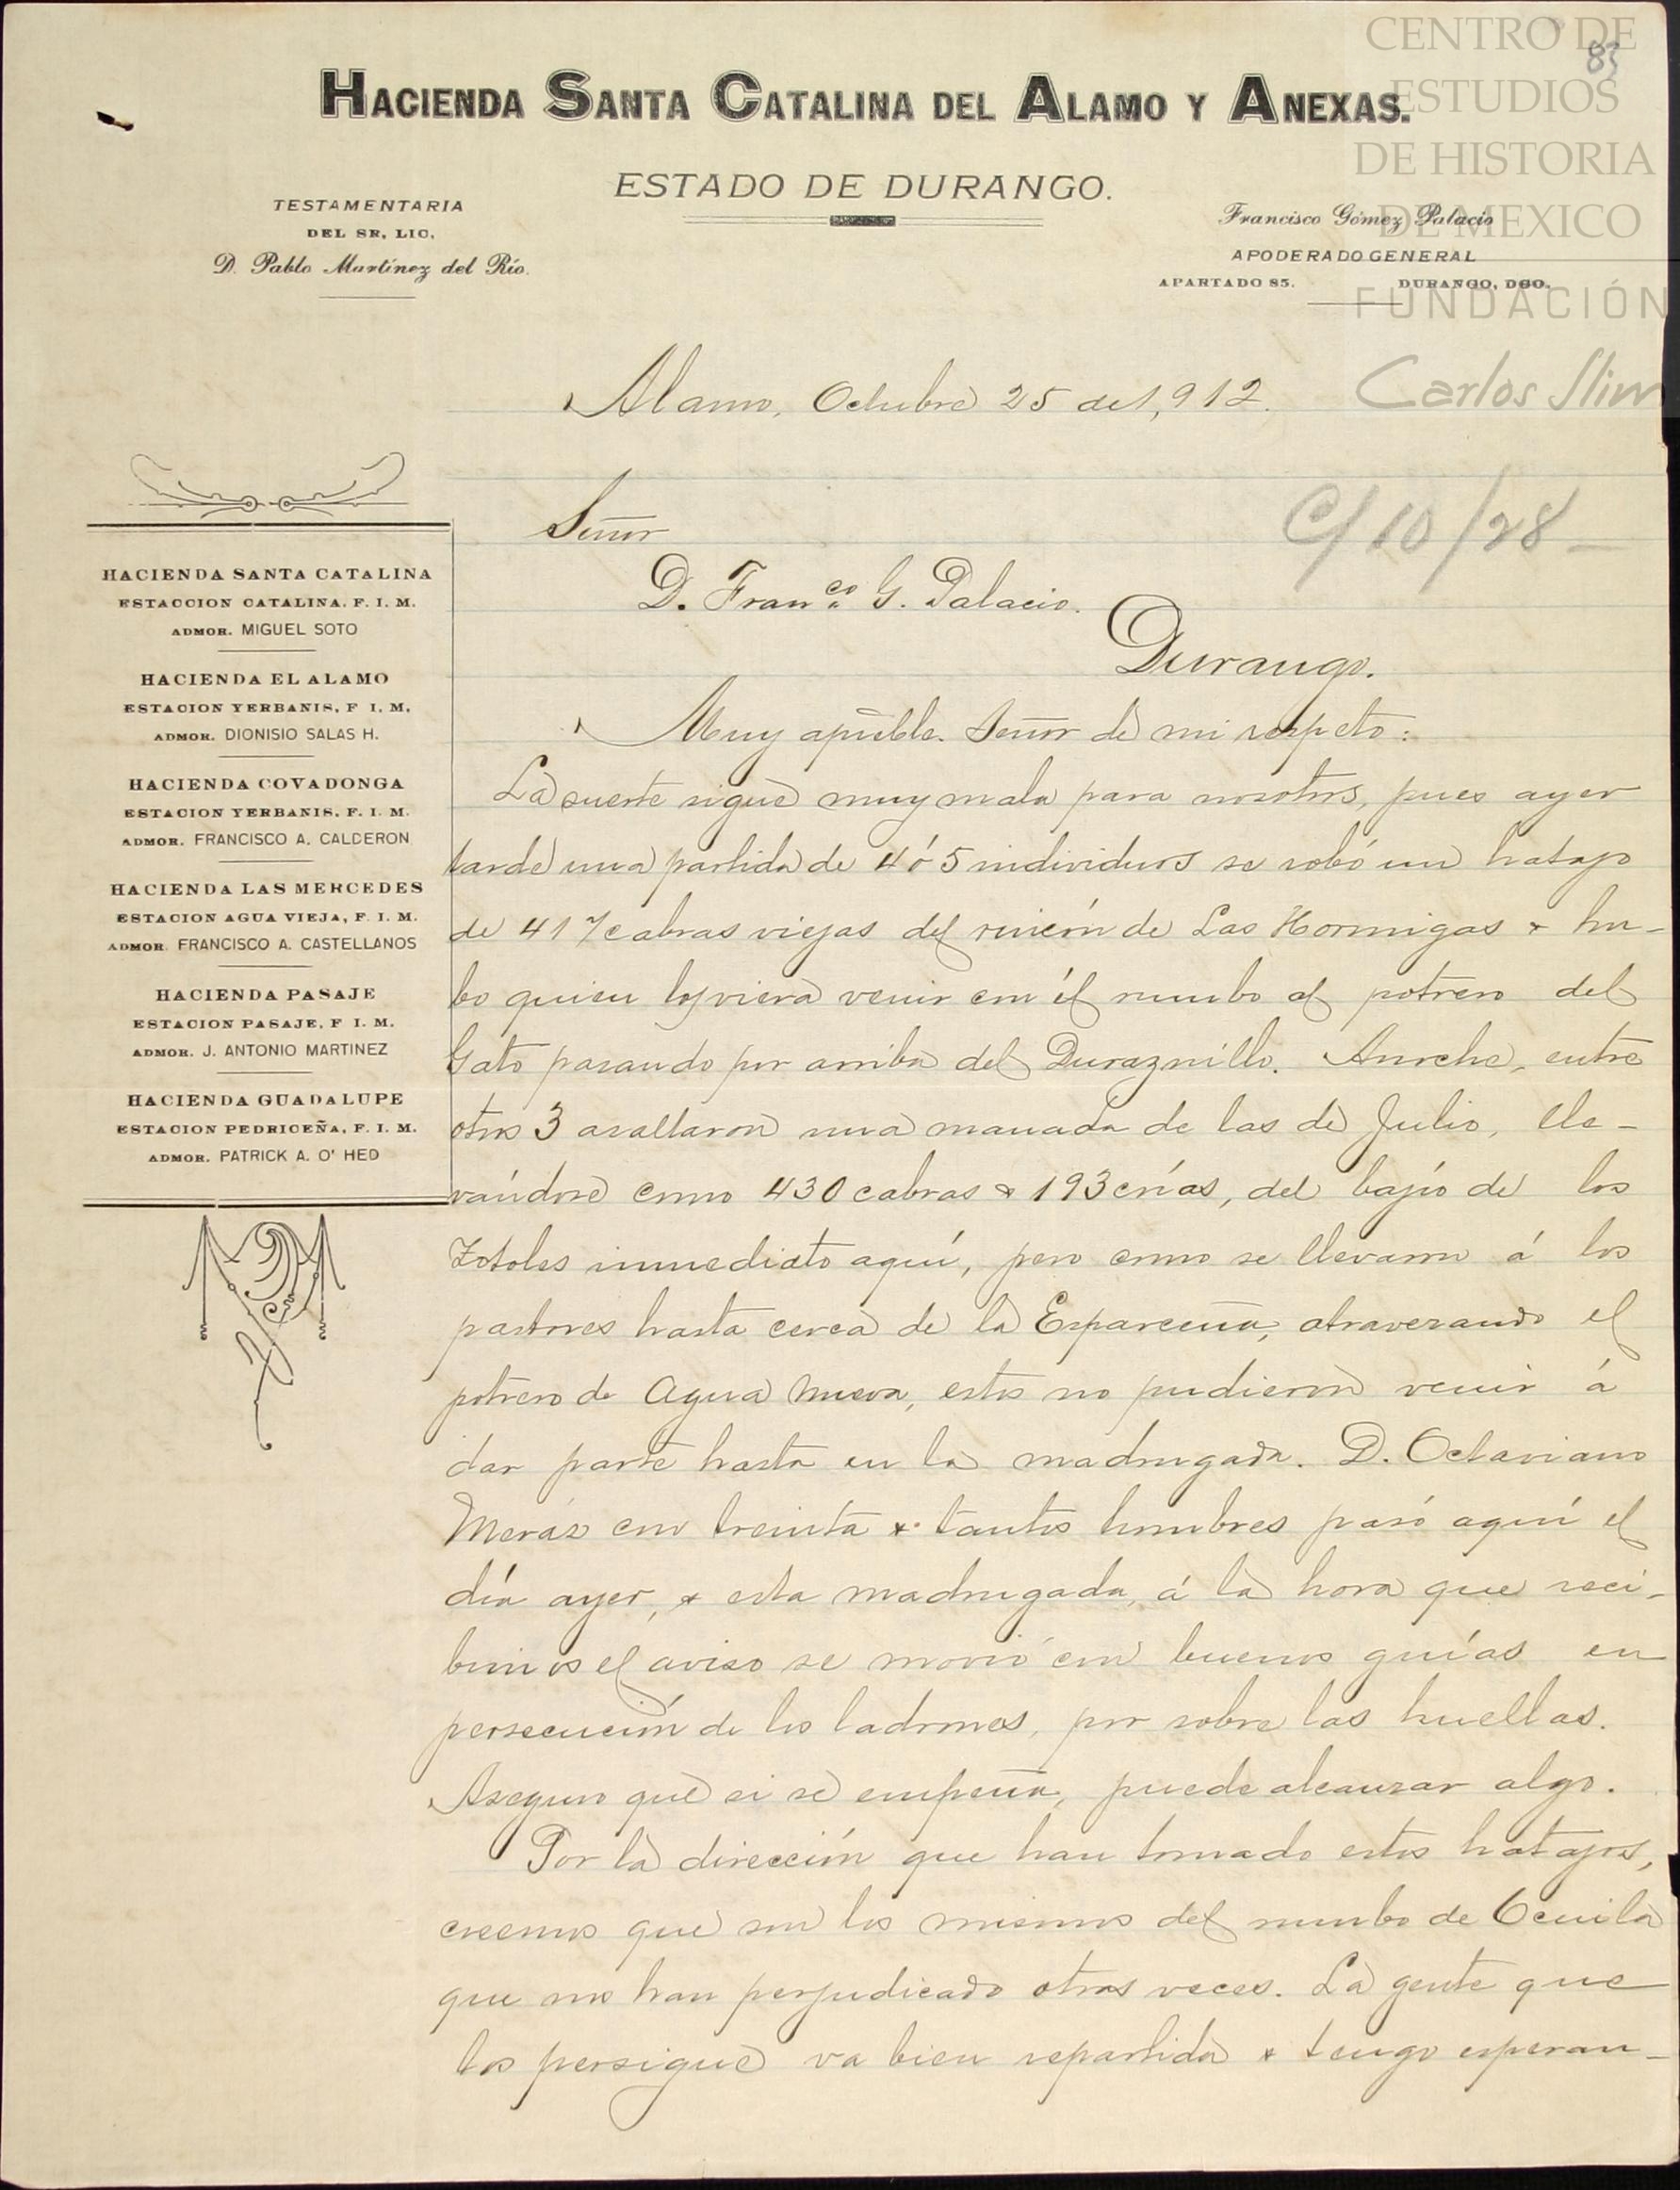 CENTRO DE
ESTUDIOS
DE HISTORIA
DE MEXICO
FUNDACIÓN
Carlos Slim
83
HACIENDA SANTA CATALINA DEL ALAMO Y ANEXAS.
ESTADO DE DURANGO.
TESTAMENTARIA
DEL SR. LIC.
D. Pablo Martínez del Río.
Francisco Gómez Palacio
APODERADO GENERAL
APARTADO 85. DURANGO, DGO.
Alamo, Octubre 25 de 1,912.
C/10/28-
Señor
D. Franco. G. Palacio.
Durango.
HACIENDA SANTA CATALINA
ESTACCION CATALINA, F. I. M.
ADMOR. MIGUEL SOTO
HACIENDA EL ALAMO
ESTACION YERBANIS, F. I. M.
ADMOR. DIONISIO SALAS H.
HACIENDA COVADONGA
ESTACION YERBANIS, F. I. M.
ADMOR. FRANCISCO A. CALDERON
HACIENDA LAS MERCEDES
ESTACION AGUA VIEJA, F. I. M.
ADMOR. FRANCISCO A. CASTELLANOS
HACIENDA PASAJE
ESTACION PASAJE, F. I. M.
ADMOR. J. ANTONIO MARTINEZ
HACIENDA GUADALUPE
ESTACION PEDRICEÑA, F. I. M.
ADMOR. PATRICK A. O' HED
Muy apble. Señor de mi respeto:
La suerte sigue muy mala para nosotros, pues ayer
tarde una partida de 4 ó 5 individuos se robó un hatajo
de 417 cabras viejas del rincón de Las Hormigas & hu-
bo quien los viera venir con él rumbo al potrero del
Gato pasando por arriba del Duraznillo. Anoche, entre
otros 3 asaltaron una manada de las de Julio, lle-
vándose como 430 cabras & 193 crías, del bajío de los
Zotoles inmediato aquí, pero como se llevaron á los
pastores hasta cerca de la Esparceña, atravezando el
potrero de Agua Nueva, estos no pudieron venir á
dar parte hasta en la madrugada. D. Octaviano
Meráz con treinta & tantos hombres pasó aquí el
día ayer, & esta madrugada, á la hora que reci-
bimos el aviso se movió con buenos guías en
persecución de los ladrones, por sobre las huellas.
Aseguro que si se empeña, puede alcanzar algo.
Por la dirección que han tomado estos hatajos,
creemos que son los mismos del rumbo de Ocuila
que nos han perjudicado otras veces. La gente que
los persigue va bien repartida & tengo esperan-